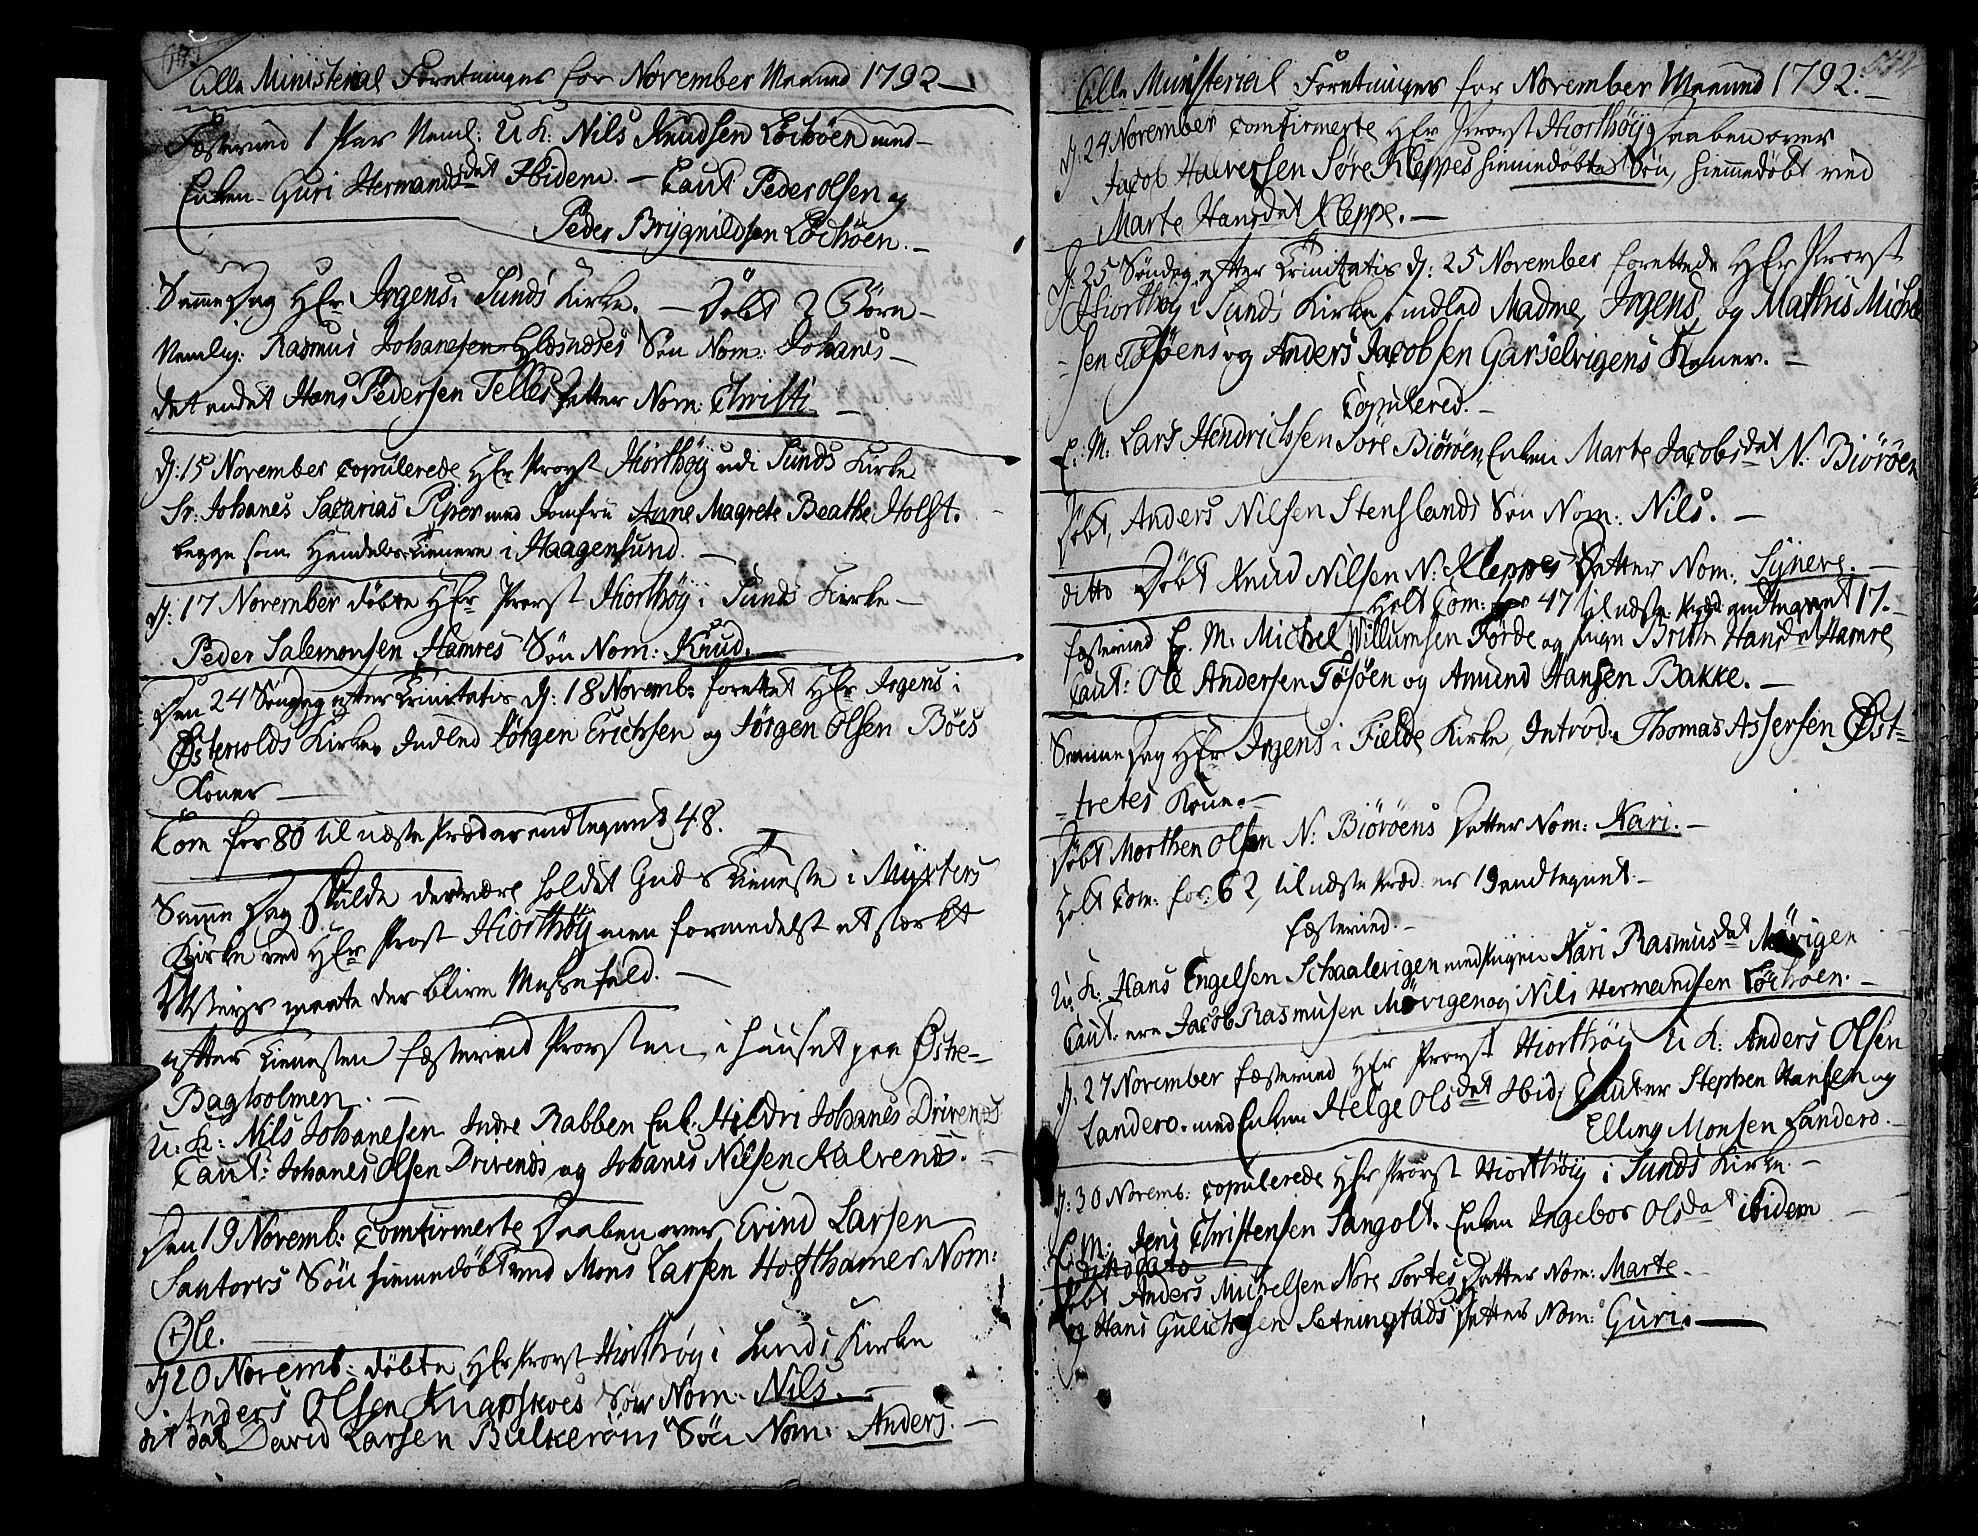 Alle Ministerial Foretninger for November Maaned 1792
Fæstevied 1 Par Neml: U: K: Nils Knudsen Løchøen med
Enken Guri Hermandsdat Ibidem. Caut Peder Olsen og
Peder Brÿgnildsen Løchøen.
Samme Dag HEr Irgens i Sunds Kirke. Døbt 2 Børn
Nemlig: Rasmus Johanesen Glesnæses Søn Nom: Johanes
det andet Hans Pedersen Telles Datter Nom: Christi
D: 15 November copulerede HEr Provst Hiorthøÿ udi Sunds Kirke
Sr. Johanes Sacarias Piper med Jomfru Anne Magrete Beathe Holst.
begge som Handels Tienere i Haagensund.
D: 17 November døbte HEr Provst Hiorthøÿ i Sunds Kirke
Peder Salemonsen Hamres Søn Nom: Knud.
Den 24 Søndag efter Trinitatis d: 18 Novemb: forettet HEr Irgens i
Østervolds Kirke Indled Jørgen Erichsen og Jørgen Olsen Böes
Koner
Com for 80 til næste Præd er andtegnet 48.
Samme Dag skulde der være holdet Guds Tieneste i Mÿrsters
Kirke ved HEr Provst Hiorthøÿ men formedelst et stærkt
Veÿr maate der blive Messefald.
efter Tienesten fæstevied Provsten, i Huuset paa Østre
Bagholmen.
U: K: Nils Johanesen Indre Rabben Enk: Hildri Johanes Drivenes
Caut: Johanes Olsen Drivends og Johanes Nilsen Kalvenes.
Den 19 Novemb: Comfirmerte Daaben over Evind Larsen
Santorvs Søn hiemmedøbt ved Mons Larsen Hofthamer Nom:
Ole.
D 20 Novemb: døbte HEr Provst Hiorthøÿ i Sunds Kirke
Anders Olsen Knapskoes Søn Nom: Nils.
dit dat David Larsen Bulkerøns Søn Nom: Anders.
Alle Ministerial Foretninger for November Maaned 1792.
D: 24 November comfirmerte HEr Provst Hiorthøÿ Daaben over
Jacob Halversen Søre Kleppes hiemmedøbte Søn, hiemmedøbt ved
Marte Hansdat Kleppe.
D: 25 Søndag efter Trinitatis d: 25 November forettede HEr Provst
Hiorthøÿ i Sunds Kirke, indled Madme, Irgens, og Mathis Michel
sen Tøsøens og Anders Jacobsen Garselvigens Koner.
Copulered.
E: M: Lars Hendrichsen Søre Biørøen, Enken Marte Jacobsdat N: Biørøen
Døbt, Anders Nilsen Stenslands Søn Nom: Nils.
ditto Døbt Knud Nilsen N: Kleppes Datter Nom: Sÿneve.
Holt Com: for 47 til næste Præd andtegnet 17.
fæstevied E: M: Michel Willumsen Førde og Pigen Britte Hansdat Hamre
Caut: Ole Andersen Tøsøen og Amund Hansen Bakke.
Samme Dag HEr Irgens i Fielde Kirke, Introd: Thomas Assersen Øst-
tretes Kone.
Døbt Morthen Olsen N: Biørøens Datter Nom: Kari.
Holt Com: for 62, til næste Præd. er 19 andtegnet.
fæstevied.
U: K: Hans Engelsen Schaalevigen med Pigen Kari Rasmusdat Møvigen
Caut: ere Jacob Rasmusen Møvigen og Nils Hermandsen Løchøen.
D: 27 November fæstevied HEr Provst Hiorthøÿ U: K: Anders Olsen
Landero. med Enken Helge Olsdat Ibid: Caut er Stephen Hansen og
Elling Monsen Landero.
D: 30 Novemb: copulerede HEr Provst Hiorthøÿ i Sunds Kirke
E: M: Jens Christensen Sangolt. Enken Ingebor Olsdat ibidem
dito dato
Døbt Anders Michelsen Nore Tortes Datter Nom: Marte
og Hans Gulichsen Setningstads Datter Nom: Guri.